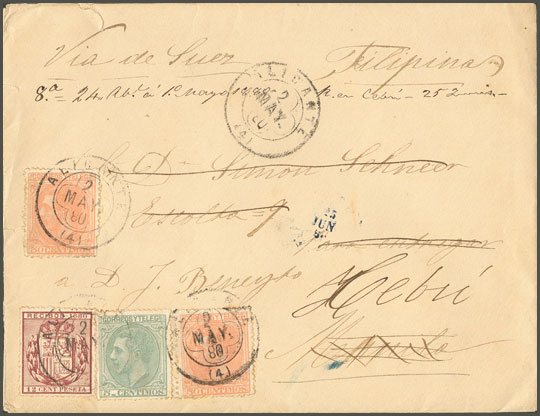 Via de Suez Filipinas
8.ª = 24. Ab.l á 1º Mayo 1880 R. en Cebú - 25 Junio -
ALICANTE
2
MAY.
80
(4)
D.n Simon Schneer
ALICANTE
2
MAY.
80
(4)
Escolta = 9
25
JUN
80
para entregar
a D. J. Beneyto
Hebú
Manila
RECIBOS 1880
2
MAY
12 CENT PESETA
CORREOS Y TELEGS
5 CENTIMOS
2
MAY.
80
(4)